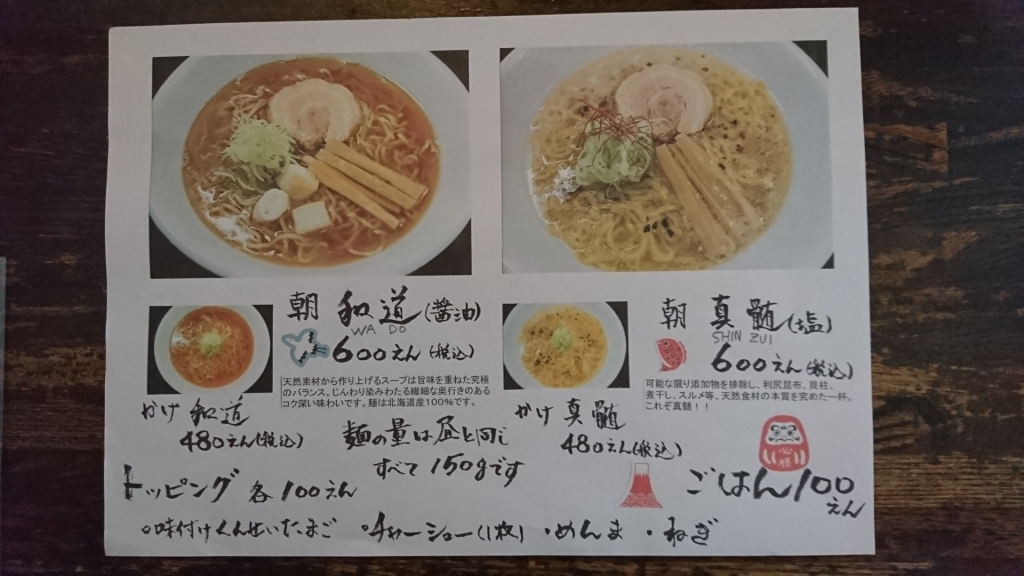 朝 和道(醤油)
WA DO
600えん(税込)
天然素材から作り上げるスープは旨味を重ねた究極
のバランス。じんわり染みわたる繊細な奥行きのある
コク深い味わいです。麺は北海道産100%です。
朝 真髄(塩)
SHIN ZUI
600えん(税込)
可能な限り添加物を排除し、利尻昆布、貝柱、
煮干し、スルメ等、天然食材の本質を究めた一杯。
これぞ真髄！！
かけ 和道
480えん(税込)
麺の量は昼と同じ
すべて150gです
かけ 真髄
480えん(税込)
トッピング 各100えん
ごはん100
えん
・味付けくんせいたまご ・チャーシュー(1枚) ・めんま ・ねぎ